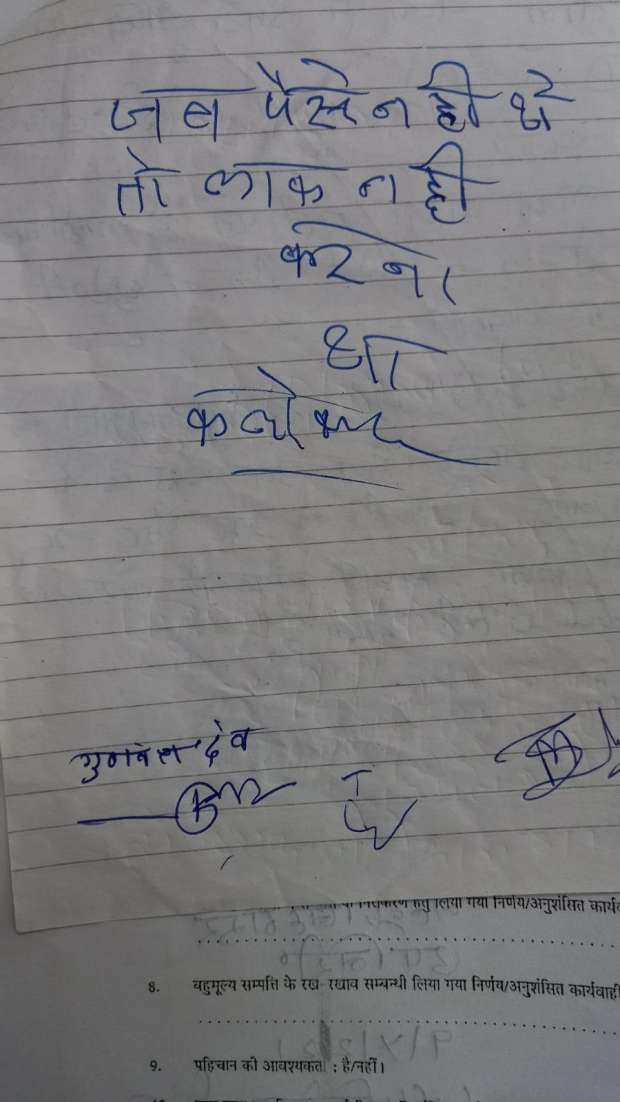 जब पैसे नही थे
तो लाक नही
करना
था
कलेक्टर
देव
गया निर्णय/अनुशंसित
8. बहुमूल्य सम्पत्ति के रख-रखाव सम्बन्धी लिया गया निर्णय/अनुशंसित कार्यवाही
9. पहिचान की आवश्यकता : है/नहीं।